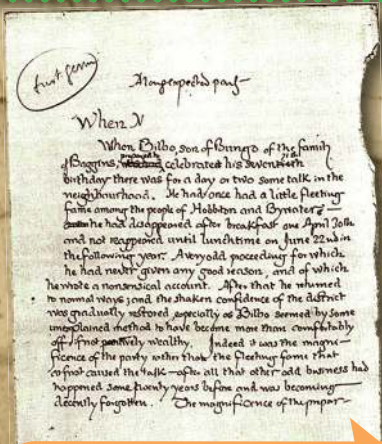 first germ
A long expected party
When N
When Bilbo, son of Bungo of the family
of Baggins, prepared to celebrate his seventieth
birthday there was for a day or two some talk in the
neighbourhood. He had once had a little fleeting
fame among the people of Hobbiton and Bywater -
he had disappeared after breakfast one April 30th
and not reappeared until lunchtime on June 22nd in
the following year. A very odd proceeding for which
he had never given any good reason, and of which
he wrote a nonsensical account. After that he returned
to normal ways; and the shaken confidence of the district
was gradually restored, especially as Bilbo seemed by some
unexplained method to have become more than comfortably
off, if not positively wealthy. Indeed it was the magni-
ficence of the party rather than the fleeting fame that
at first caused the talk - after all that other odd business had
happened some twenty years before and was becoming
decently forgotten. The magnificence of the prepar-